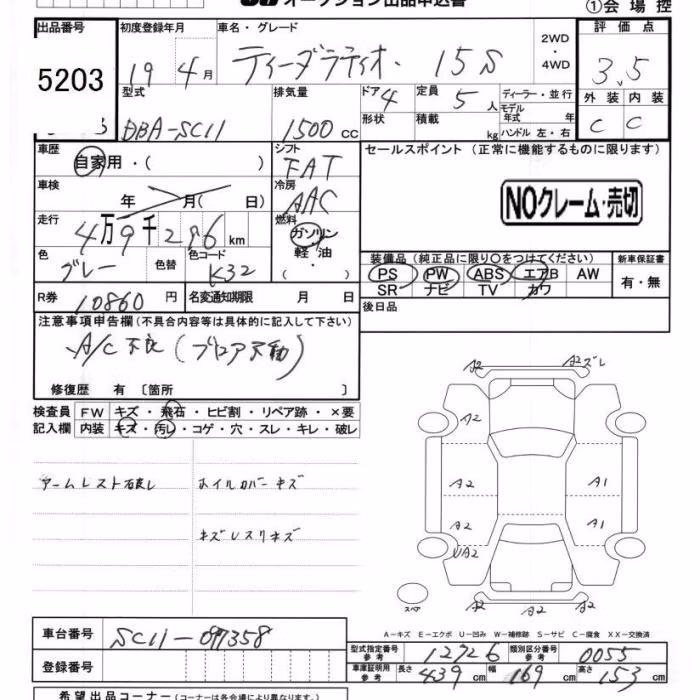 オークション出品申込書
①会場控
出品番号 初度登録年月 車名・グレード 2WD・4WD 評価点
5203 19年4月 ティーダラティオ 15S 3.5
型式 排気量 ドア 4 定員 5人 ディーラー・並行 外装 内装
DBA-SC11 1500cc 形状 積載 kg モデル年式 年 C C
ハンドル 左・右
車歴 シフト セールスポイント (正常に機能するものに限ります)
自家用・( ) FAT
車検 年 月( 日) 冷房 AAC
NOクレーム・売切
走行 4万9千296km 燃料 ガソリン・軽油・( )
色 グレー 色替 色コード K32
装備品 (純正品に限り○をつけてください) 新車保証書
PS PW ABS エアB AW 有・無
SR ナビ TV カワ
R券 10860円 名変通知期限 月 日 後日品
注意事項申告欄(不具合内容等は具体的に記入して下さい)
A/C不良(ブロア不動)
修復歴 有〔箇所 〕
検査員 FW キズ・飛石・ヒビ割・リペア跡・×要
記入欄 内装 キズ・汚レ・コゲ・穴・スレ・キレ・破レ
アームレスト ホイルカバーキズ
キズ
A2 A2ズレ
A2
A2 A1
A2 A1
UA2
A2 A2 A2
スペア
A−キズ E−エクボ U−凹み W−補修跡 S−サビ C−腐食 XX−交換済
車台番号 SC11-097358
型式指定番号 参考 12726 類別区分番号 参考 0055
登録番号
車庫証明用 参考 長さ 439cm 幅 169cm 高さ 153cm
希望出品コーナー(コーナーは各会場により異なります。)